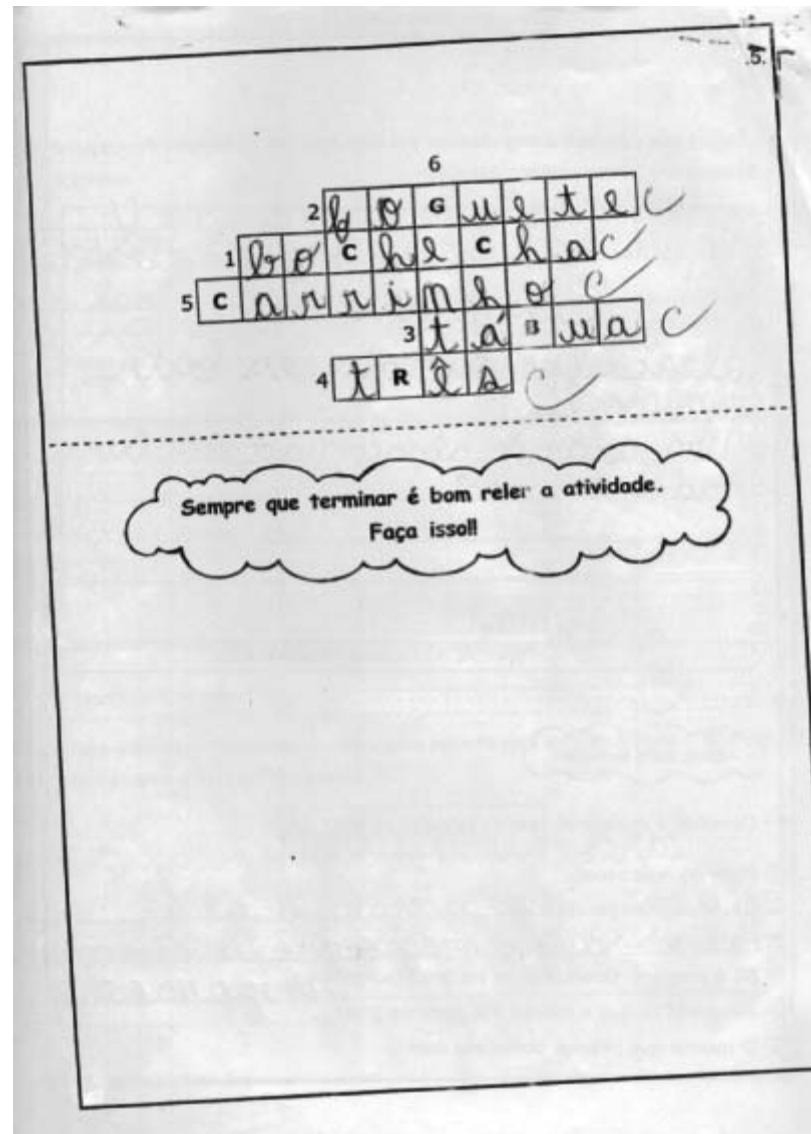 .5.
6
2 foGuete
1 boCheCha
5 Carrinho
3 táBua
4 tRês
Sempre que terminar é bom reler a atividade.
Faça isso!!